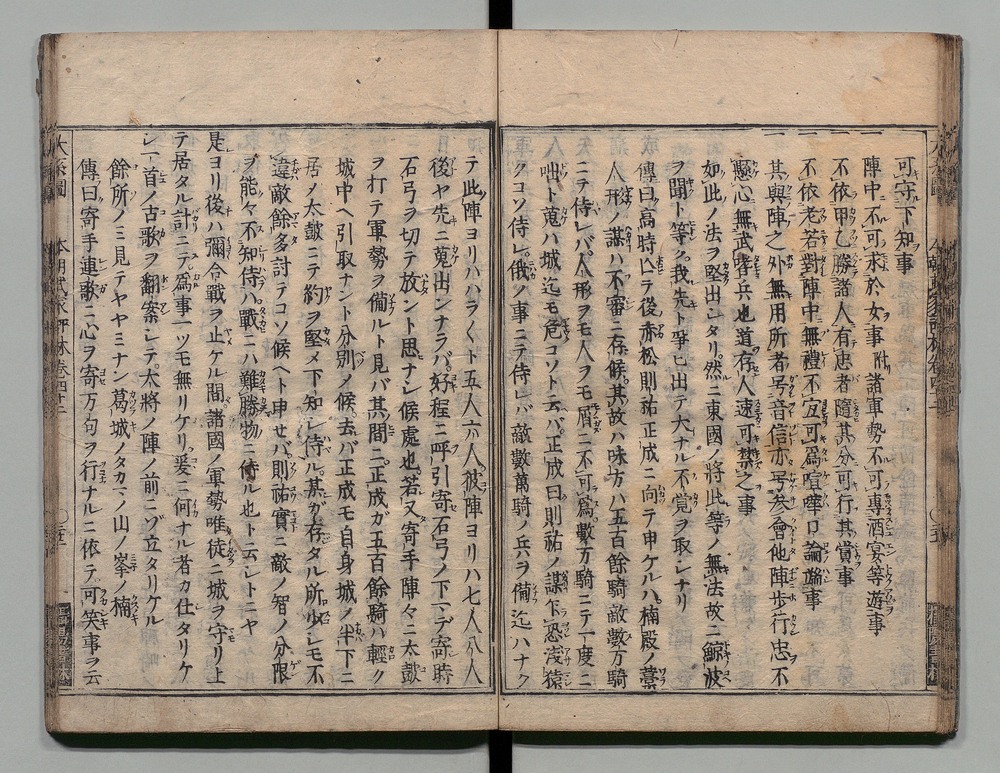 可守下知事
一陣中不可求於女事附諸軍勢不可專酒宴等遊事
一不依甲乙勝諸人有忠者隨其分可行其賞事
一不依老若對陣中無禮不宜可爲喧嘩口論㕝事
一其與陣之外無用所者号音信亦号参會他陣歩行忠不
懸心無武者兵也道存人速可禁之事
如此ノ法ヲ堅出シタリ然ニ東國ノ將此等ノ無法故ニ鯨波
ヲ聞ト等ク我先ト爭ヒ出テ大ナル不覚ヲ取シナリ
傳曰高時亡テ後赤松則祐正成ニ向テ申ケルハ楠殿ノ藁
人形ノ謀ハ不審ニ存候其故ハ味方ハ五百餘騎敵數万騎
ニテ侍レバ人形ヲモ人ヲモ屑ニ不可爲數万騎ニテ一度ニ
咄ト蒐ハ城迄モ危コソト云バ正成曰則祐ノ謀下恐淺猿
クコソ侍レ俄ノ事ニテ侍レバ敵數萬騎ノ兵ヲ備迄ハナク
テ此陣ヨリハハラくト五人六人彼陣ヨリハ七人八人
後ヤ先ニ蒐出ンナラバ好程ニ呼引寄石弓ノ下ニテ寄時
石弓ヲ切テ放ント思ナン候處也若又寄手陣々ニ太鼓
ヲ打テ軍勢ヲ備ルト見バ其間ニ正成カ五百餘騎ハ輕ク
城中ヘ引取ナント分別ノ候去バ正成モ自身城ノ半下ニ
居ノ太鼓ニテ約ヲ堅メ下知シ侍ル某が存タル所少シモ不
違敵餘多討テコソ候ヘト申セバ則祐實ニ敵ノ智ノ分限
ヲ能々不知侍ハ戰ニハ難勝物ニ侍ル也ト云シトニヤ
是ヨリ後ハ彌令戰ヲ止ケル間諸國ノ軍勢唯徒ニ城ヲ守リ上
テ居タル計ニテ爲事一ツモ無リケリ爰ニ何ナル者カ仕タリケ
ン一首ノ古歌ヲ翻案シテ太將ノ陣ノ前ニゾ立タリケル
餘所ノミ見テヤヤミナン葛城ノタカマノ山ノ峯ノ楠
傳曰寄手連歌ニ心ヲ寄万句ヲ行ナルニ依テ可笑事ヲ云
大系圖　本朝武家評林卷四十二